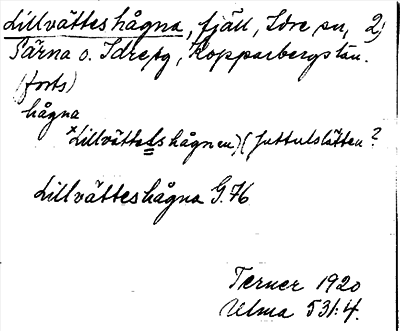 Lillvätteshågna, fjäll, Idre sn, 2)
Särna o. Idre tg, Kopparbergs län.
(forts)
hågna
*Lillvättelshågnen)(Juttulslätten?
Lillvätteshågna G.76
Terner 1920
Ulma 531:4.